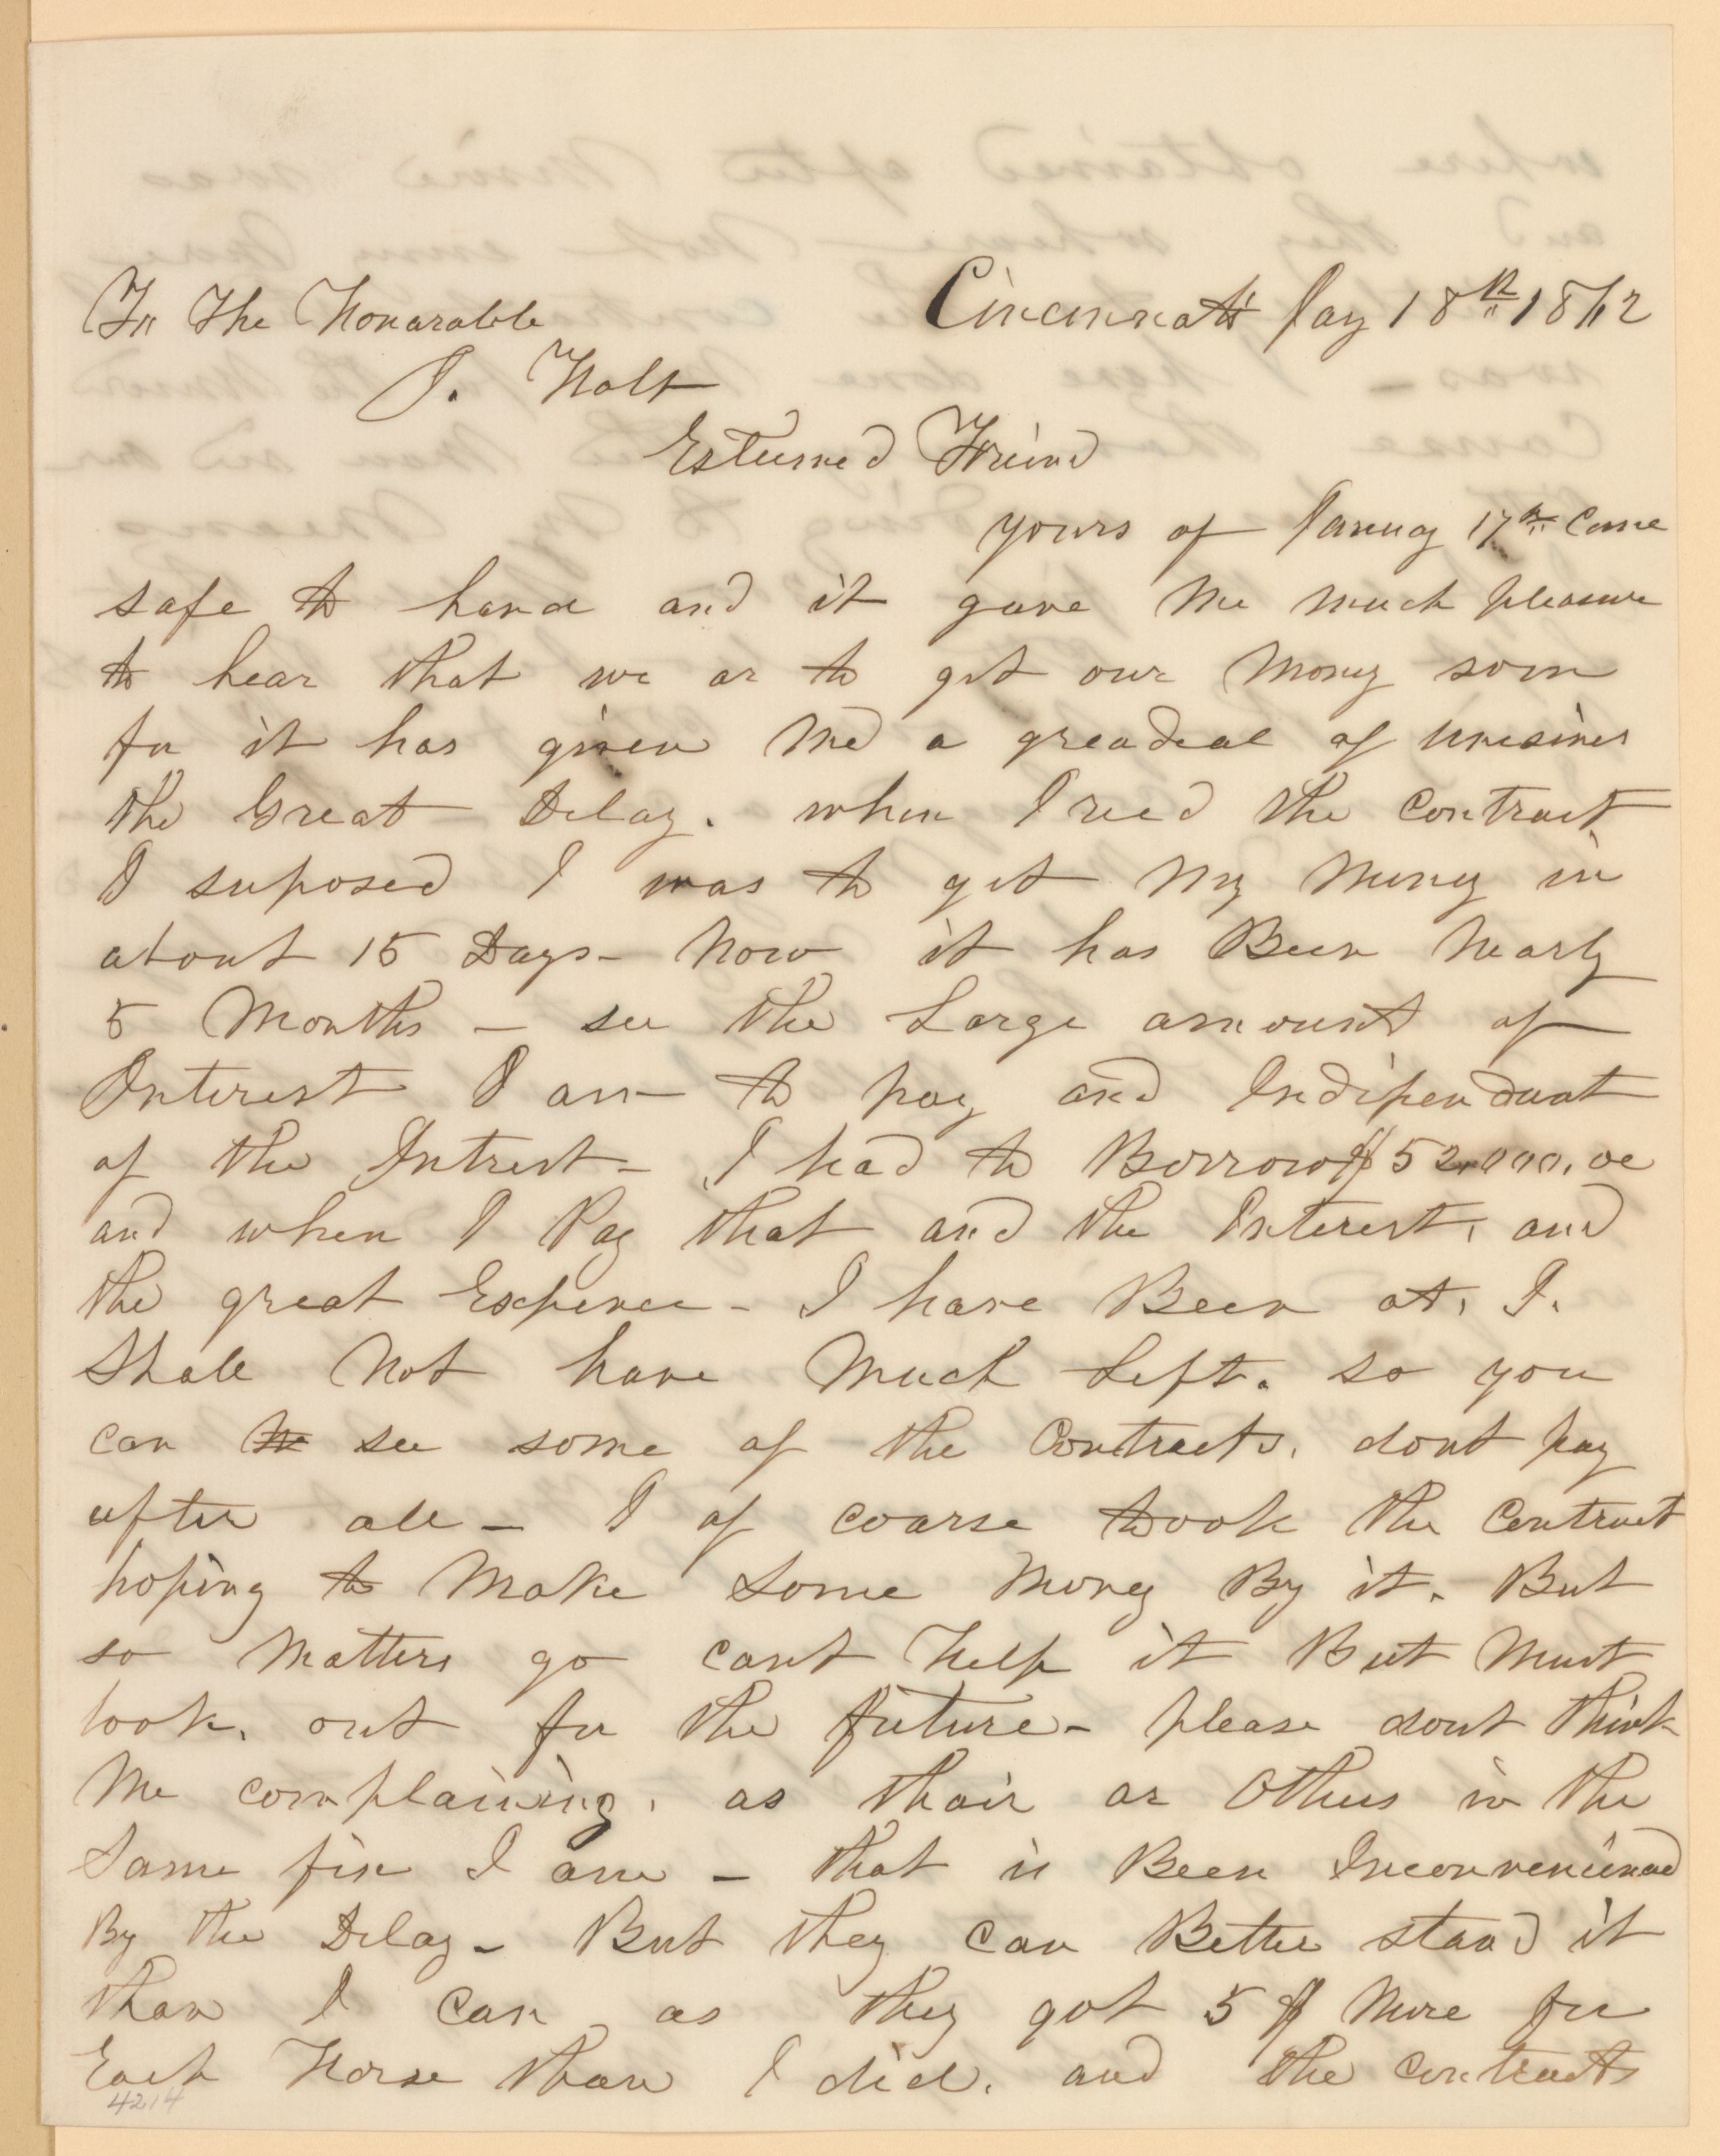 To The Honarable
Cincinnati Jay 18th 1862
J. Holt
Esteemed Friend
yours of Januay 17th Came
safe to hand and it gave Me much pleasure
to hear that we ar to get our Mony soon
for it has given Me a greadeal of unesines
the Great Delay. when I recd the Contract
I suposed I was to get My Muney in
about 15 Days - Now it has Been Nearly
5 Months - see the Large amount of
Interest I am to pay and Indipenduat
of the Intrest - I had to Borrow $52,000,00
and when I Pay that and the Interest, and
the great Expence - I have Been at, I.
Shall Not have Much Left. so you
can see some of the Contracts, dont pay
after all - I of coarse took the Contract
hoping to Make some Money By it. But
so Matters go cant Help it But Must
look, out for the future - please dont think
Me complaining, as thair ar Others in the
Same fix I am - that is Been Inconvenienced
By the Delay - But they can Better stand it
than I can as they got 5 $ More for
Each Horse than I did. and the contracts
4214